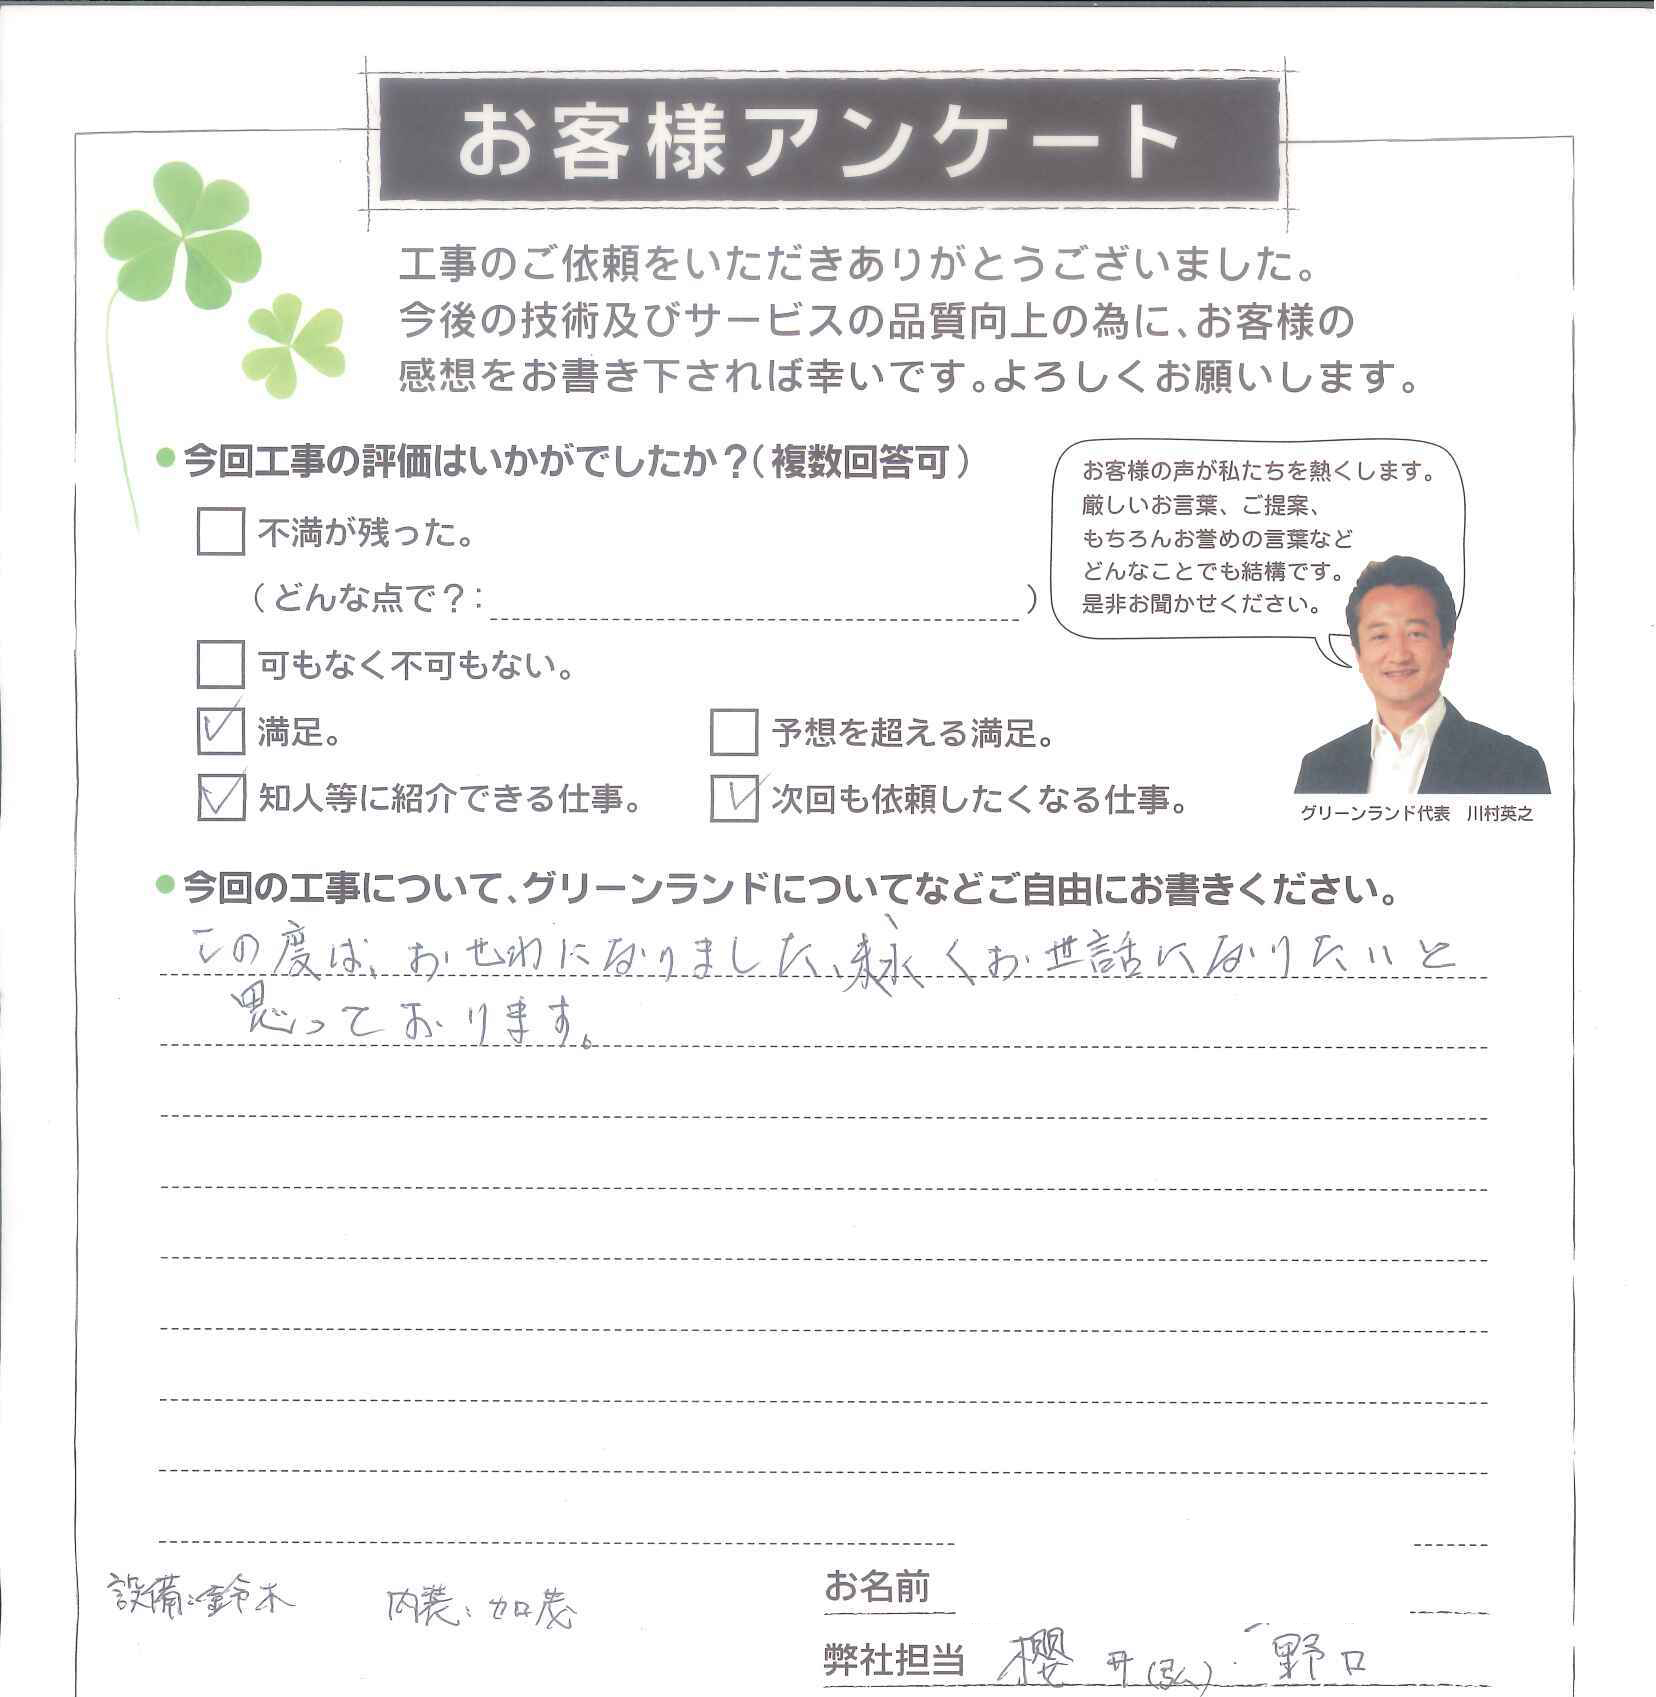 お客様アンケート
工事のご依頼をいただきありがとうございました。
今後の技術及びサービスの品質向上の為に、お客様の
感想をお書き下されば幸いです。よろしくお願いします。
今回工事の評価はいかがでしたか?(複数回答可)
不満が残った。
(どんな点で?: )
可もなく不可もない。
満足。
予想を超える満足。
知人等に紹介できる仕事。
次回も依頼したくなる仕事。
お客様の声が私たちを熱くします。
厳しいお言葉、ご提案、
もちろんお誉めの言葉など
どんなことでも結構です。
是非お聞かせください。
グリーンランド代表 川村英之
今回の工事について、グリーンランドについてなどご自由にお書きください。
この度は、おせわになりました、永くお世話になりたいと
思っております。
設備:鈴木 内装:加茂
お名前
弊社担当 櫻井(弘)・野口